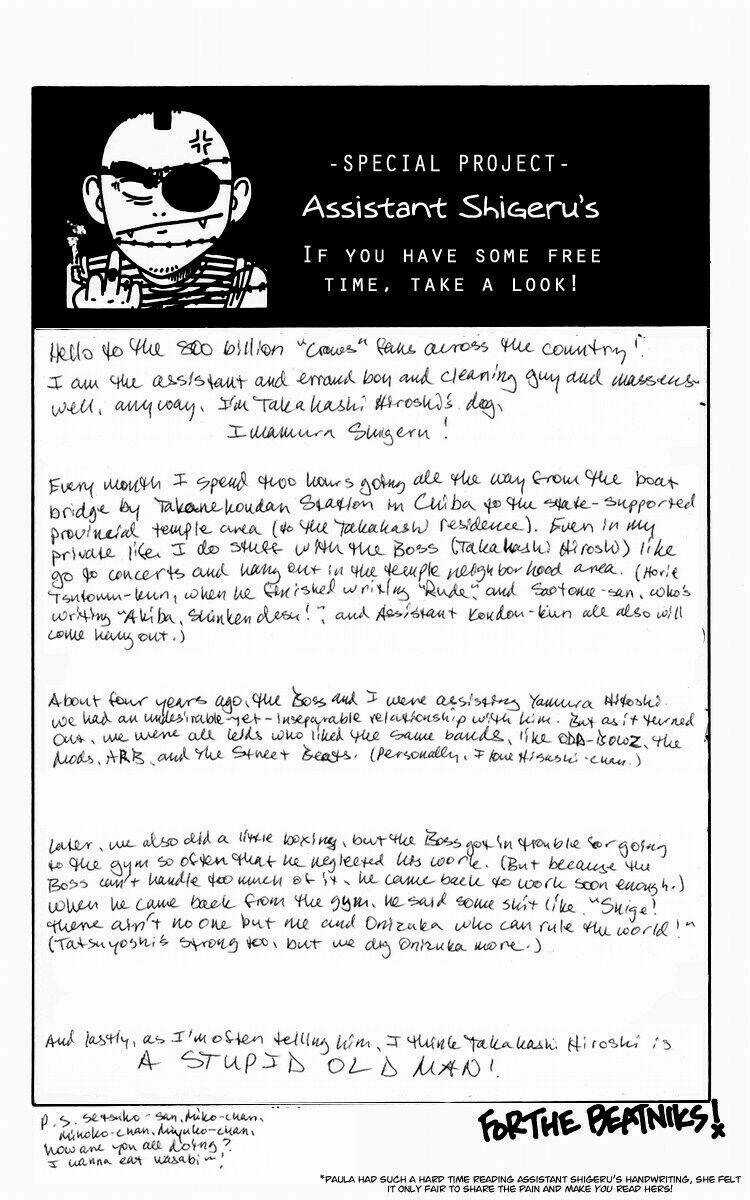 -SPECIAL PROJECT-
Assistant Shigeru's
IF YOU HAVE SOME FREE
TIME, TAKE A LOOK!
Hello to the 800 billion "Crows" fans across the country!
I am the assistant and errand boy and cleaning guy and masseus-
well, anyway, I'm Takahashi Hiroshi's dog,
Imamura Shigeru!
Every month I spend two hours going all the way from the boat
bridge by Takanekoudan Station in Chiba to the state-supported
provincial temple area (to the Takahashi residence). Even in my
private life I do stuff with the Boss (Takahashi Hiroshi) like
go to concerts and hang out in the temple neighborhood area. (Horie
Tsutomu-kun, when he finished writing "Rude" and Saotome-san, who's
writing "Akiba, Shinken desu!", and Assistant Kondou-kun all also will
come hang out.)
About four years ago, the Boss and I were assisting Yamura Hitoshi.
We had an undesirable-yet-inseparable relationship with him. But as it turned
out, we were all kids who liked the same bands, like the
Mods, ARB, and the Street Beats. (Personally, I love Hisashi-chan.)
Later, we also did a little boxing, but the Boss got in trouble for going
to the gym so often that he neglected his work. (But because the
Boss can't handle too much of it, he came back to work soon enough.)
When he came back from the gym, he said some shit like, "Shige!
There ain't no one but me and Onizuka who can rule the world!"
(Tatsuyoshi's strong too, but we dig Onizuka more.)
And lastly, as I'm often telling him, I think Takahashi Hiroshi is
A STUPID OLD MAN!
P.S. Setsuko-san, Miko-chan,
Minoko-chan, Miyuko-chan,
how are you all doing?
I wanna eat wasabi~!
FOR THE BEATNIKS!
*PAULA HAD SUCH A HARD TIME READING ASSISTANT SHIGERU'S HANDWRITING, SHE FELT
IT ONLY FAIR TO SHARE THE PAIN AND MAKE YOU READ HERS!